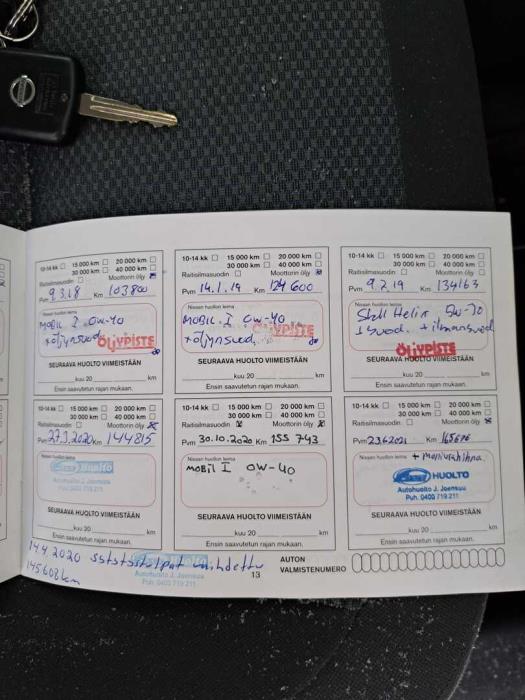 NISSAN
10-14 kk 15 000 km 20 000 km
30 000 km 40 000 km
Raitisilmasuodin Moottorin öljy
Pvm 9.3.18 Km 103800
Nissan huollon leima
MOBIL I OW-40
+öljynsuod
ÖLJYPISTE
SEURAAVA HUOLTO VIIMEISTÄÄN
kuu 20 km
Ensin saavutetun rajan mukaan.
10-14 kk 15 000 km 20 000 km
30 000 km 40 000 km
Raitisilmasuodin Moottorin öljy
Pvm 14.1.19 Km 124 600
Nissan huollon leima
MOBIL.I OW-40
+öljynsuod.
ÖLJYPISTE
SEURAAVA HUOLTO VIIMEISTÄÄN
kuu 20 km
Ensin saavutetun rajan mukaan.
10-14 kk 15 000 km 20 000 km
30 000 km 40 000 km
Raitisilmasuodin Moottorin öljy
Pvm 9.7.19 Km 134163
Nissan huollon leima
Shell Helix
+ ilmansuod
ÖLJYPISTE
SEURAAVA HUOLTO VIIMEISTÄÄN
kuu 20 km
Ensin saavutetun rajan mukaan.
10-14 kk 15 000 km 20 000 km
30 000 km 40 000 km
Raitisilmasuodin Moottorin öljy
Pvm Km 144815
Nissan huollon leima
HUOLTO
Autohuolto J. Joensuu
Puh. 0400 719 211
SEURAAVA HUOLTO VIIMEISTÄÄN
kuu 20 km
Ensin saavutetun rajan mukaan.
10-14 kk 15 000 km 20 000 km
30 000 km 40 000 km
Raitisilmasuodin Moottorin öljy
Pvm 30.10.2020 Km 155 743
Nissan huollon leima
MOBIL I OW-40
SEURAAVA HUOLTO VIIMEISTÄÄN
kuu 20 km
Ensin saavutetun rajan mukaan.
10-14 kk 15 000 km 20 000 km
30 000 km 40 000 km
Raitisilmasuodin Moottorin öljy
Pvm 23.6.2021 Km 165676
Nissan huollon leima
HUOLTO
Autohuolto J. Joensuu
Puh. 0400 719 211
SEURAAVA HUOLTO VIIMEISTÄÄN
kuu 20 km
Ensin saavutetun rajan mukaan.
14.4.2020 vaihdettu
145608 km
Autohuolto J. Joensuu
Puh. 0400 719 211
13
AUTON
VALMISTENUMERO